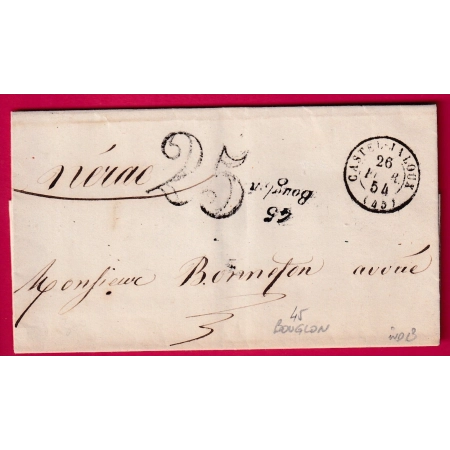 Nérac
25
45
Bouglon
CASTEL-JALOUX
26
FEVR
54
(45)
Monsieur Bonneton avoué
45
BOUGLON